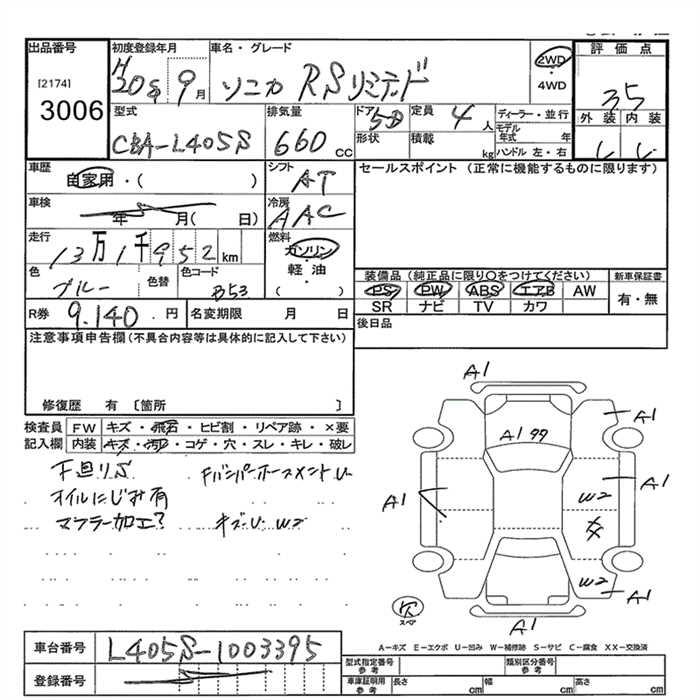 出品番号
[2174]
3006
初度登録年月
H20年 9月
車名・グレード
ソニカ RSリミテッド
2WD
・
4WD
評価点
3.5
外装 内装
型式
CBA-L405S
排気量
660 cc
ドア 5D
形状
定員 4人
積載 kg
ディーラー・並行
モデル年式 年
ハンドル 左・右
車歴
自家用・( )
シフト
AT
セールスポイント (正常に機能するものに限ります)
車検
年 月( 日)
冷房
AAC
走行
13万1千952km
燃料
ガソリン
・
軽油
( )
色
ブルー
色替
色コード
B53
装備品(純正品に限り○をつけてください)
PS PW ABS エアB AW
SR ナビ TV カワ
新車保証書
有・無
R券 9,140円
名変期限 月 日
後日品
注意事項申告欄(不具合内容等は具体的に記入して下さい)
修復歴 有 〔箇所 〕
検査員 FW キズ・飛石・ヒビ割・リペア跡・×要
記入欄 内装 キズ・汚れ・コゲ・穴・スレ・キレ・破レ
下廻りS FバンパーホースメントU
オイルにじみ有
マフラー加工? キズU W2
A1
A1
A1 99
A1
W2
A1
W2
A1
スペア
A1
A-キズ E-エクボ U-凹み W-補修跡 S-サビ C-腐食 XX-交換済
車台番号 L405S-1003395
登録番号
型式指定番号 参考
類別区分番号 参考
車庫証明用 参考
長さ cm
幅 cm
高さ cm